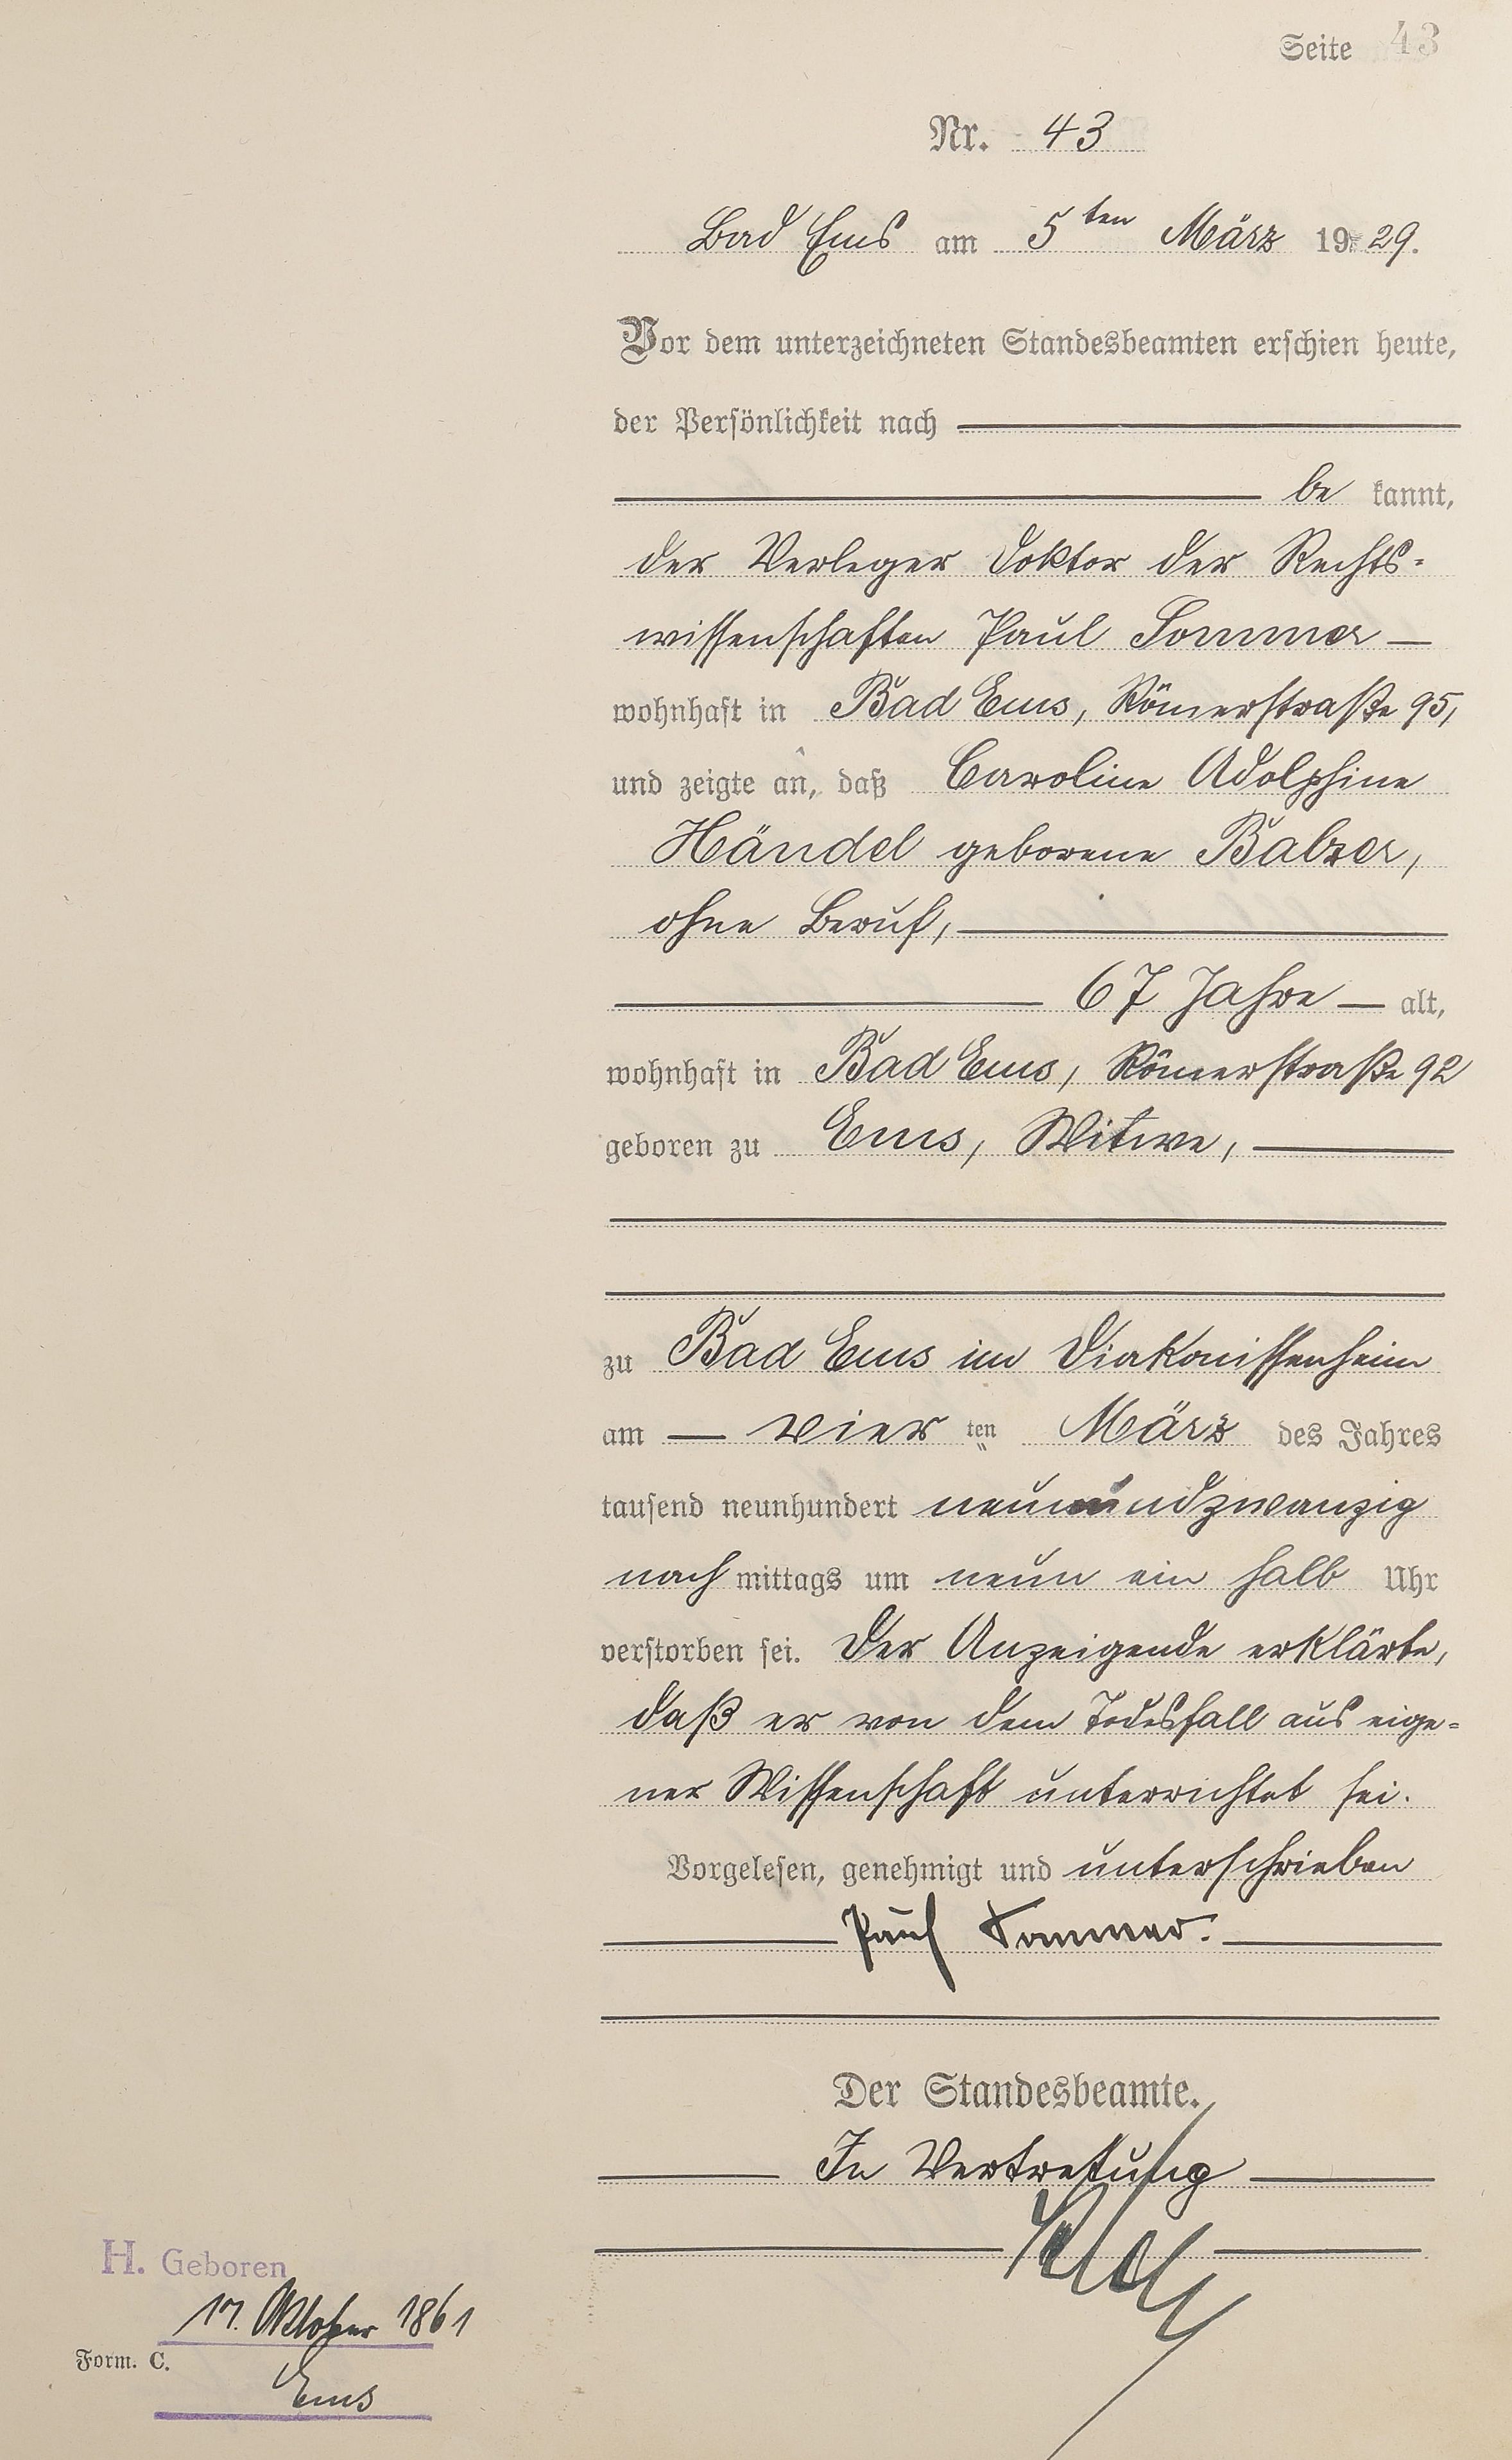 Seite 43
Nr. 43
Bad Ems am 5ten März 1929.
Vor dem unterzeichneten Standesbeamten erschien heute,
der Persönlichkeit nach
be kannt,
der Verleger Doktor der Rechts-
wissenschaften Paul Sommer —
wohnhaft in Bad Ems, Römerstraße 95,
und zeigte an, daß Caroline Adolphine
Händel geborene Balzer,
ohne Beruf,
67 Jahre — alt,
wohnhaft in Bad Ems, Römerstraße 92
geboren zu Ems, Witwe,
zu Bad Ems im Diakonissenheim
am — vier ten März des Jahres
tausend neunhundert neunundzwanzig
nach mittags um neun ein halb Uhr
verstorben sei. Der Anzeigende erklärte,
daß er von dem Todesfall aus eige-
ner Wissenschaft unterrichtet sei.
Vorgelesen, genehmigt und unterschrieben
Paul Sommer.
Der Standesbeamte.
In Vertretung
H. Geboren
17. Oktober 1861
Form. C.
Ems